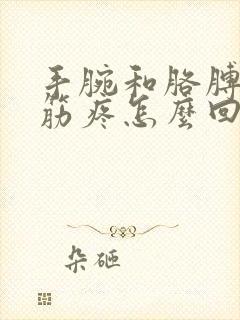 手腕和胳膊
筋疼怎麼回
朵砸